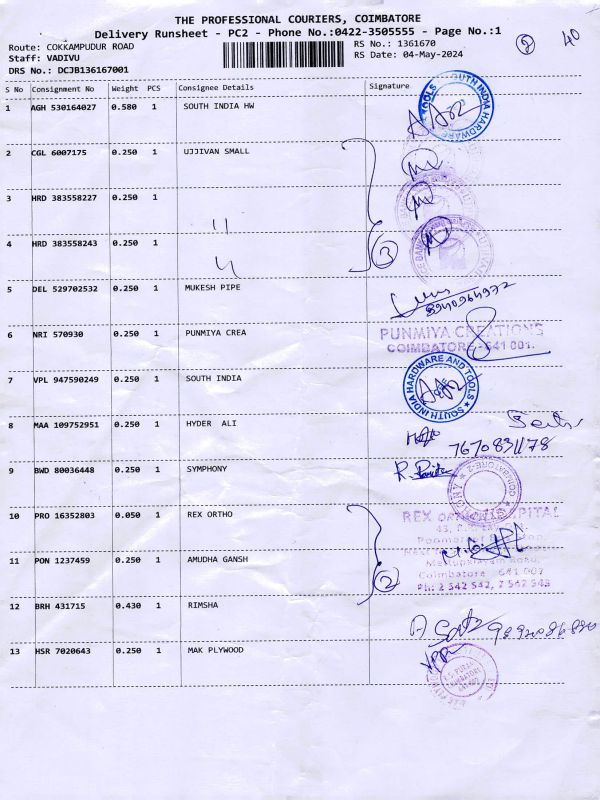 THE PROFESSIONAL COURIERS, COIMBATORE
Delivery Runsheet - PC2 - Phone No.:0422-3505555 - Page No.:1
Route: COKKAMPUDUR ROAD RS No.: 1361670
Staff: VADIVU RS Date: 04-May-2024
DRS No.: DCJB136167001
2 40
S No Consignment No Weight PCS Consignee Details Signature
1 AGH 530164027 0.580 1 SOUTH INDIA HW
TOOLS SOUTH INDIA HARDWARE
2 CGL 6007175 0.250 1 UJJIVAN SMALL
3 HRD 383558227 0.250 1 "
4 HRD 383558243 0.250 1 "
3
5 DEL 529702532 0.250 1 MUKESH PIPE
6 NRI 570930 0.250 1 PUNMIYA CREA
PUNMIYA CREATIONS
COIMBATORE - 641 001.
7 VPL 947590249 0.250 1 SOUTH INDIA
SOUTH INDIA HARDWARE AND TOOLS
8 MAA 109752951 0.250 1 HYDER ALI
7670831178
9 BWD 80036448 0.250 1 SYMPHONY
COIMBATORE-2
10 PRO 16352803 0.050 1 REX ORTHO
REX HOSPITAL
11 PON 1237459 0.250 1 AMUDHA GANSH
2
Coimbatore - 641 002
Ph: 2 542 542, 2 542 543
12 BRH 431715 0.430 1 RIMSHA
13 HSR 7020643 0.250 1 MAK PLYWOOD